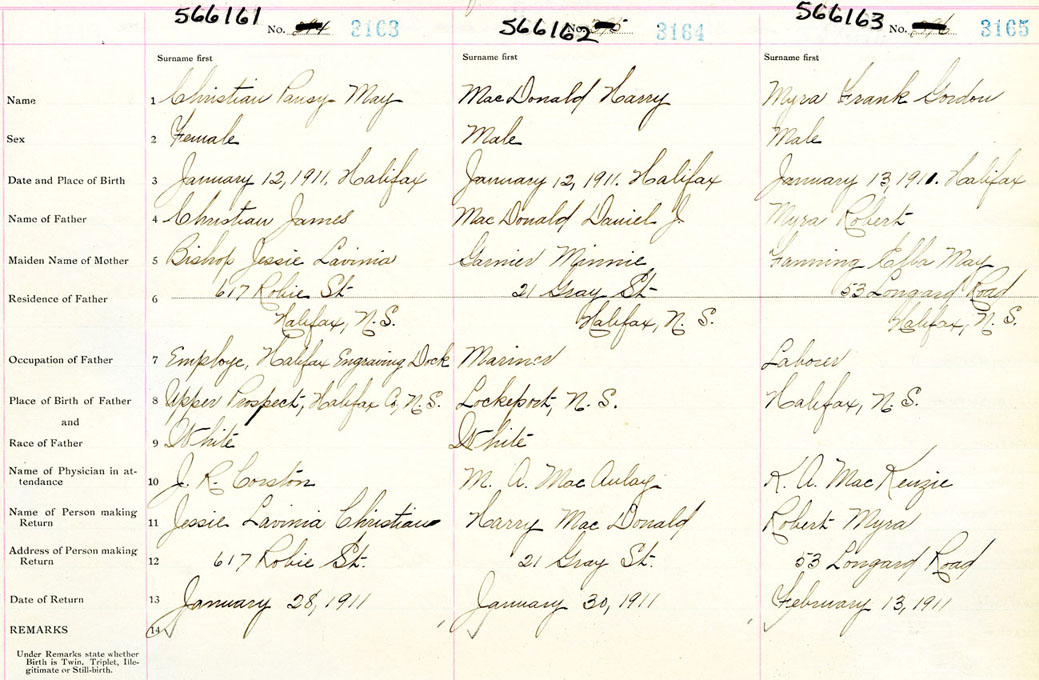 566161 No. 3163 566162 No. 3164 566163 No. 3165
Surname first Surname first Surname first
Name 1 Christian Pansy May MacDonald Harry Myra Frank Gordon
Sex 2 Female Male Male
Date and Place of Birth 3 January 12, 1911. Halifax January 12, 1911. Halifax January 13, 1911. Halifax
Name of Father 4 Christian James MacDonald Daniel J. Myra Robert
Maiden Name of Mother 5 Bishop Jessie Lavinia Garnier Minnie Fanning Effa May
Residence of Father 6 617 Robie St 21 Gray St 53 Longard Road
Halifax, N. S. Halifax, N. S. Halifax, N. S.
Occupation of Father 7 Employe, Halifax Engraving Dock Mariner Laborer
Place of Birth of Father 8 Upper Prospect, Halifax Co, N. S. Lockeport, N. S. Halifax, N. S.
and
Race of Father 9 White White
Name of Physician in at-
tendance 10 J. R. Corston M. A. MacAulay K. A. MacKenzie
Name of Person making
Return 11 Jessie Lavinia Christian Harry MacDonald Robert Myra
Address of Person making
Return 12 617 Robie St. 21 Gray St. 53 Longard Road
Date of Return 13 January 28, 1911 January 30, 1911 February 13, 1911
REMARKS 14
Under Remarks state whether
Birth is Twin, Triplet, Ille-
gitimate or Still-birth.